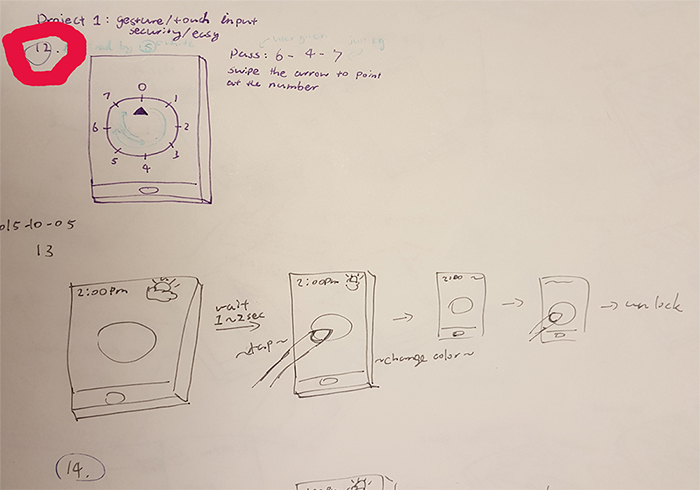 Project 1: gesture/touch input
security/easy
12.
Pass: 6 - 4 - 7
swipe the arrow to point
at the number
0
7 1
6 2
5 3
4
015-10-05
13
2:00pm
wait
1~2sec
~tap~
2:00pm
~change color~
2:00
unlock
14.